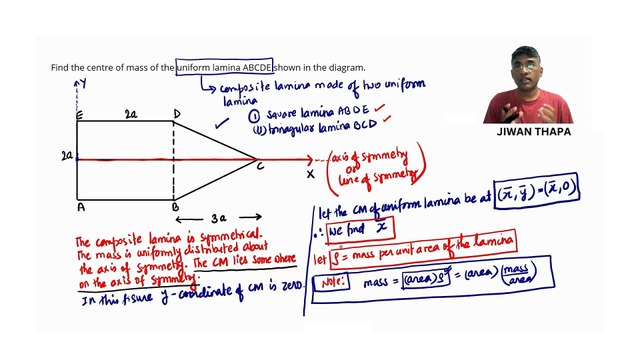 Find the centre of mass of the uniform lamina ABCDE shown in the diagram.
composite lamina made of two uniform
lamina
(i) Square lamina ABDE
(ii) triangular lamina BCD
JIWAN THAPA
Y
E
2a
D
2a
C
X
A
B
3a
(axis of symmetry
or
line of symmetry)
The composite lamina is symmetrical.
The mass is uniformly distributed about
the axis of symmetry. The CM lies some where
on the axis of symmetry.
In this figure y-coordinate of CM is zero.
let the CM of uniform lamina be at (x̄, ȳ) = (x̄, 0)
∴ We find x̄
let ρ = mass per unit area of the lamina
Note: mass = (area) ρ = (area) (mass/area)